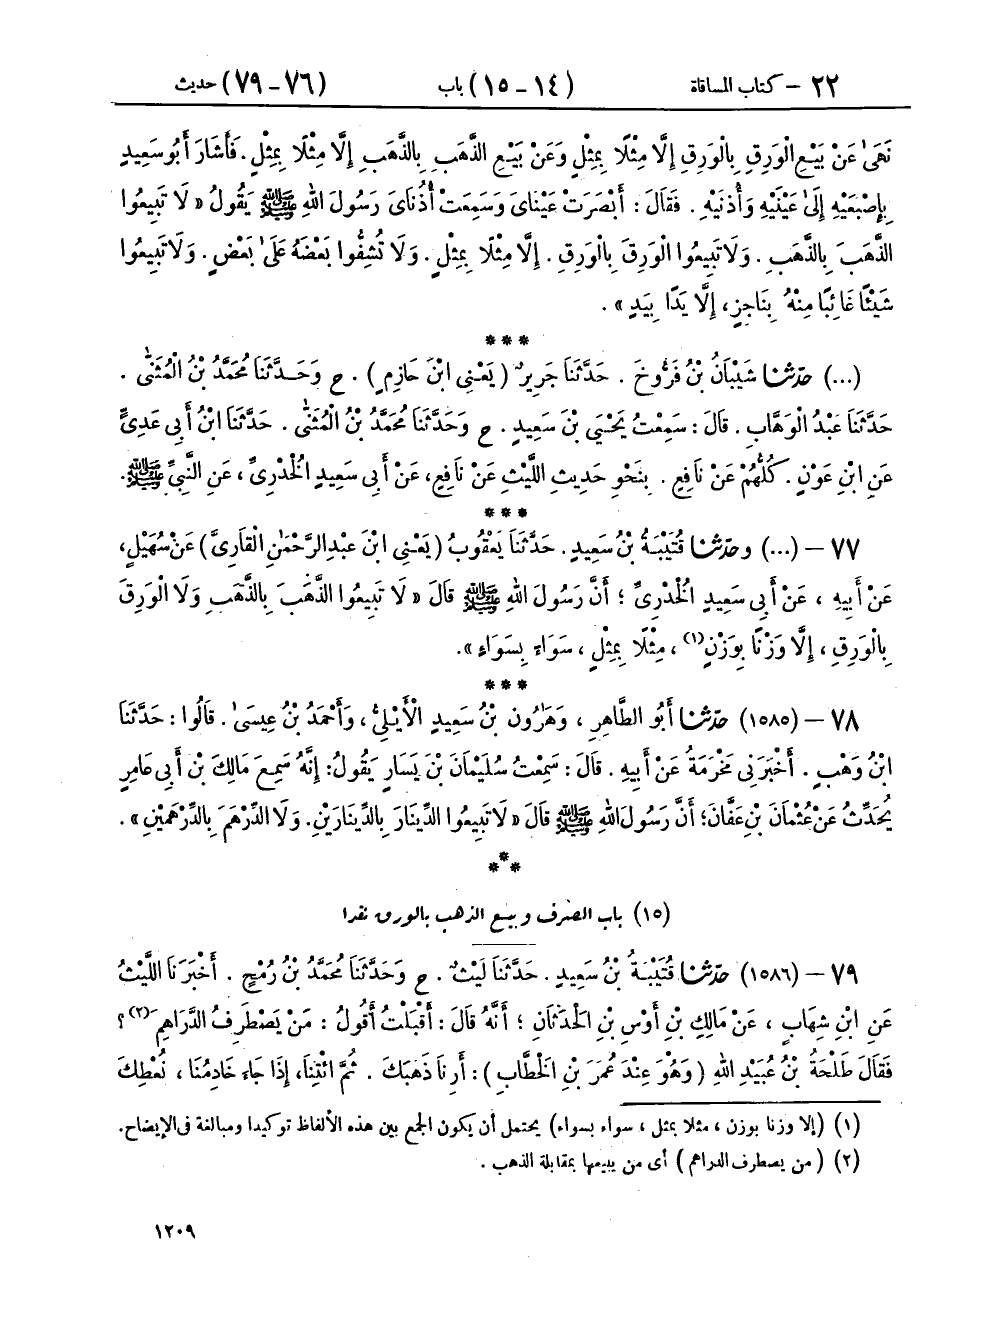 ٢٢ – كتاب المساقاة (١٤ – ١٥) باب (٧٦ – ٧٩) حديث
نَهَىٰ عَنْ بَيْعِ الْوَرِقِ بِالْوَرِقِ إِلَّا مِثْلًا بِمِثْلٍ وَعَنْ بَيْعِ الذَّهَبِ بِالذَّهَبِ إِلَّا مِثْلًا بِمِثْلٍ. فَأَشَارَ أَبُو سَعِيدٍ
بِإِصْبَعَيْهِ إِلَىٰ عَيْنَيْهِ وَأُذُنَيْهِ. فَقَالَ: أَبْصَرَتْ عَيْنَاىَ وَسَمِعَتْ أُذُنَاىَ رَسُولَ اللهِ ﷺ يَقُولُ « لَا تَبِيعُوا
الذَّهَبَ بِالذَّهَبِ. وَلَا تَبِيعُوا الْوَرِقَ بِالْوَرِقِ. إِلَّا مِثْلًا بِمِثْلٍ. وَلَا تُشِفُّوا بَعْضَهُ عَلَىٰ بَعْضٍ. وَلَا تَبِيعُوا
شَيْئًا غَائِبًا مِنْهُ بِنَاجِزٍ، إِلَّا يَدًا بِيَدٍ ».
***
(...) حَدَّثَنَا شَيْبَانُ بْنُ فَرُّوخَ. حَدَّثَنَا جَرِيرٌ (يَعْنِى ابْنَ حَازِمٍ). ح وَحَدَّثَنَا مُحَمَّدُ بْنُ الْمُثَنَّىٰ.
حَدَّثَنَا عَبْدُ الْوَهَّابِ. قَالَ: سَمِعْتُ يَحْيَىَ بْنَ سَعِيدٍ. ح وَحَدَّثَنَا مُحَمَّدُ بْنُ الْمُثَنَّىٰ. حَدَّثَنَا ابْنُ أَبِى عَدِىٍّ
عَنِ ابْنِ عَوْنٍ. كُلُّهُمْ عَنْ نَافِعٍ. بِنَحْوِ حَدِيثِ اللَّيْثِ عَنْ نَافِعٍ، عَنْ أَبِى سَعِيدٍ الْخُدْرِىِّ، عَنِ النَّبِىِّ ﷺ.
***
٧٧ – (...) وحَدَّثَنَا قُتَيْبَةُ بْنُ سَعِيدٍ. حَدَّثَنَا يَعْقُوبُ (يَعْنِى ابْنَ عَبْدِ الرَّحْمَٰنِ الْقَارِىَّ) عَنْ سُهَيْلٍ،
عَنْ أَبِيهِ، عَنْ أَبِى سَعِيدٍ الْخُدْرِىِّ؛ أَنَّ رَسُولَ اللهِ ﷺ قَالَ « لَا تَبِيعُوا الذَّهَبَ بِالذَّهَبِ وَلَا الْوَرِقَ
بِالْوَرِقِ، إِلَّا وَزْنًا بِوَزْنٍ(١)، مِثْلًا بِمِثْلٍ، سَوَاءً بِسَوَاءٍ ».
***
٧٨ – (١٥٨٥) حَدَّثَنَا أَبُو الطَّاهِرِ، وَهَٰرُونُ بْنُ سَعِيدٍ الْأَيْلِىُّ، وَأَحْمَدُ بْنُ عِيسَىٰ. قَالُوا: حَدَّثَنَا
ابْنُ وَهْبٍ. أَخْبَرَنِى مَخْرَمَةُ عَنْ أَبِيهِ. قَالَ: سَمِعْتُ سُلَيْمَانَ بْنَ يَسَارٍ يَقُولُ: إِنَّهُ سَمِعَ مَالِكَ بْنَ أَبِى عَامِرٍ
يُحَدِّثُ عَنْ عُثْمَانَ بْنِ عَفَّانَ؛ أَنَّ رَسُولَ اللهِ ﷺ قَالَ « لَا تَبِيعُوا الدِّينَارَ بِالدِّينَارَيْنِ. وَلَا الدِّرْهَمَ بِالدِّرْهَمَيْنِ ».
***
(١٥) باب الصرف وبيع الذهب بالورق نقدا
٧٩ – (١٥٨٦) حَدَّثَنَا قُتَيْبَةُ بْنُ سَعِيدٍ. حَدَّثَنَا لَيْثٌ. ح وَحَدَّثَنَا مُحَمَّدُ بْنُ رُمْحٍ. أَخْبَرَنَا اللَّيْثُ
عَنِ ابْنِ شِهَابٍ، عَنْ مَالِكِ بْنِ أَوْسِ بْنِ الْحَدَثَانِ؛ أَنَّهُ قَالَ: أَقْبَلْتُ أَقُولُ: مَنْ يَصْطَرِفُ الدَّرَاهِمَ(٢)؟
فَقَالَ طَلْحَةُ بْنُ عُبَيْدِ اللهِ (وَهُوَ عِنْدَ عُمَرَ بْنِ الْخَطَّابِ): أَرِنَا ذَهَبَكَ. ثُمَّ ائْتِنَا، إِذَا جَاءَ خَادِمُنَا، نُعْطِكَ
(١) (إلا وزنا بوزن، مثلا بمثل، سواء بسواء) يحتمل أن يكون الجمع بين هذه الألفاظ توكيدا ومبالغة فى الإيضاح.
(٢) (من يصطرف الدراهم) أى من يبيعها بمقابلة الذهب.
١٢٠٩